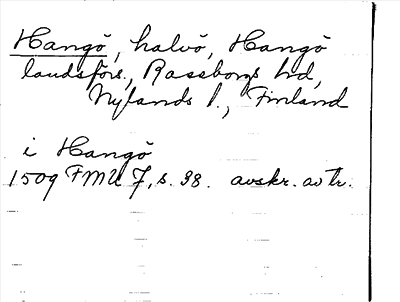 Hangö, halvö, Hangö
landsförs., Raseborgs hd,
Nylands l., Finland
i Hangö
1509 FMU 7, s. 98. avskr. av tr.